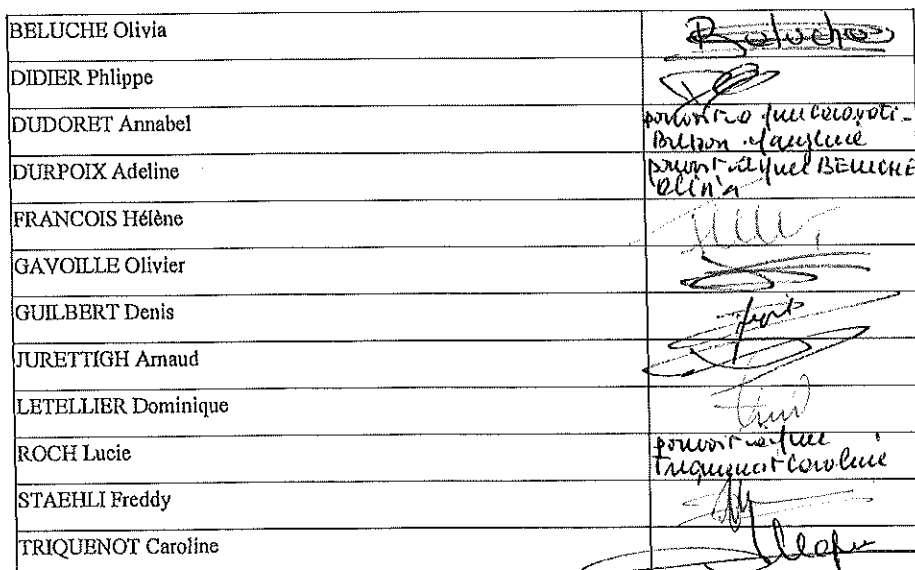 BELUCHE Olivia Beluche
DIDIER Phlippe
DUDORET Annabel pouvoir à
DURPOIX Adeline pouvoir à BELUCHE
Olivia
FRANCOIS Hélène
GAVOILLE Olivier
GUILBERT Denis
JURETTIGH Arnaud
LETELLIER Dominique
ROCH Lucie pouvoir à
Triquenot Caroline
STAEHLI Freddy
TRIQUENOT Caroline